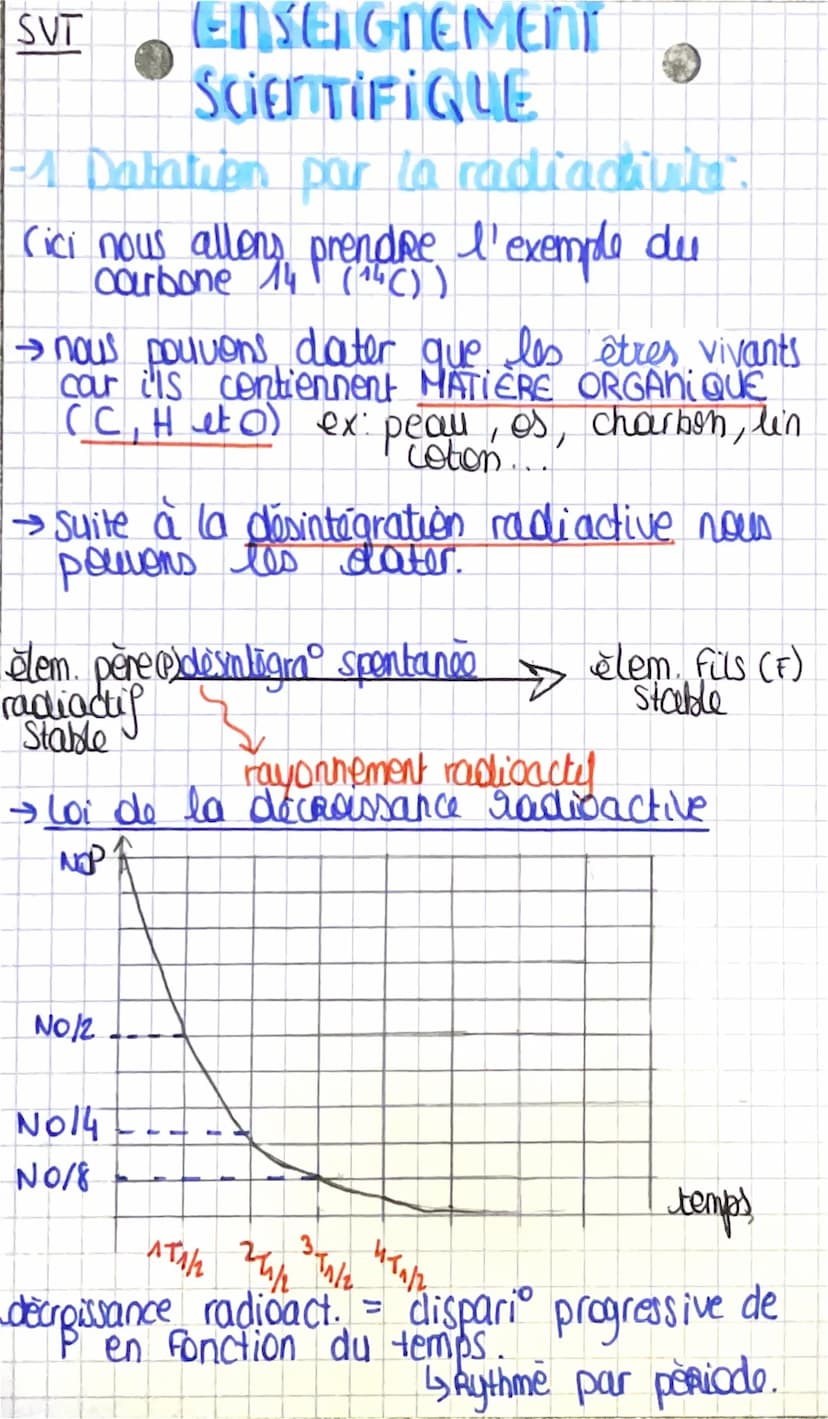 SVT
ENSEIGNEMENT
SCIENTIFIQUE
-1 Datation par la radiactivité.
(ici nous allons prendre l'exemple du
carbone 14 (¹⁴C))
→ nous pouvons dater que les êtres vivants
car ils contiennent MATIÈRE ORGANIQUE
(C, H et O) ex: peau, os, charbon, lin
coton...
→ suite à la désintégration radiactive nous
pouvons les dater.
élem. père(P) désintégra° spontanée élem. fils (F)
radiactif stable
stable
rayonnement radioactif
→ Loi de la décroissance radioactive
N0P
N0/2
N0/4
N0/8
temps
1T1/2 2T1/2 3T1/2 4T1/2
décroissance radioact. = dispari° progressive de
P en fonction du temps.
↳ Rythmé par période.